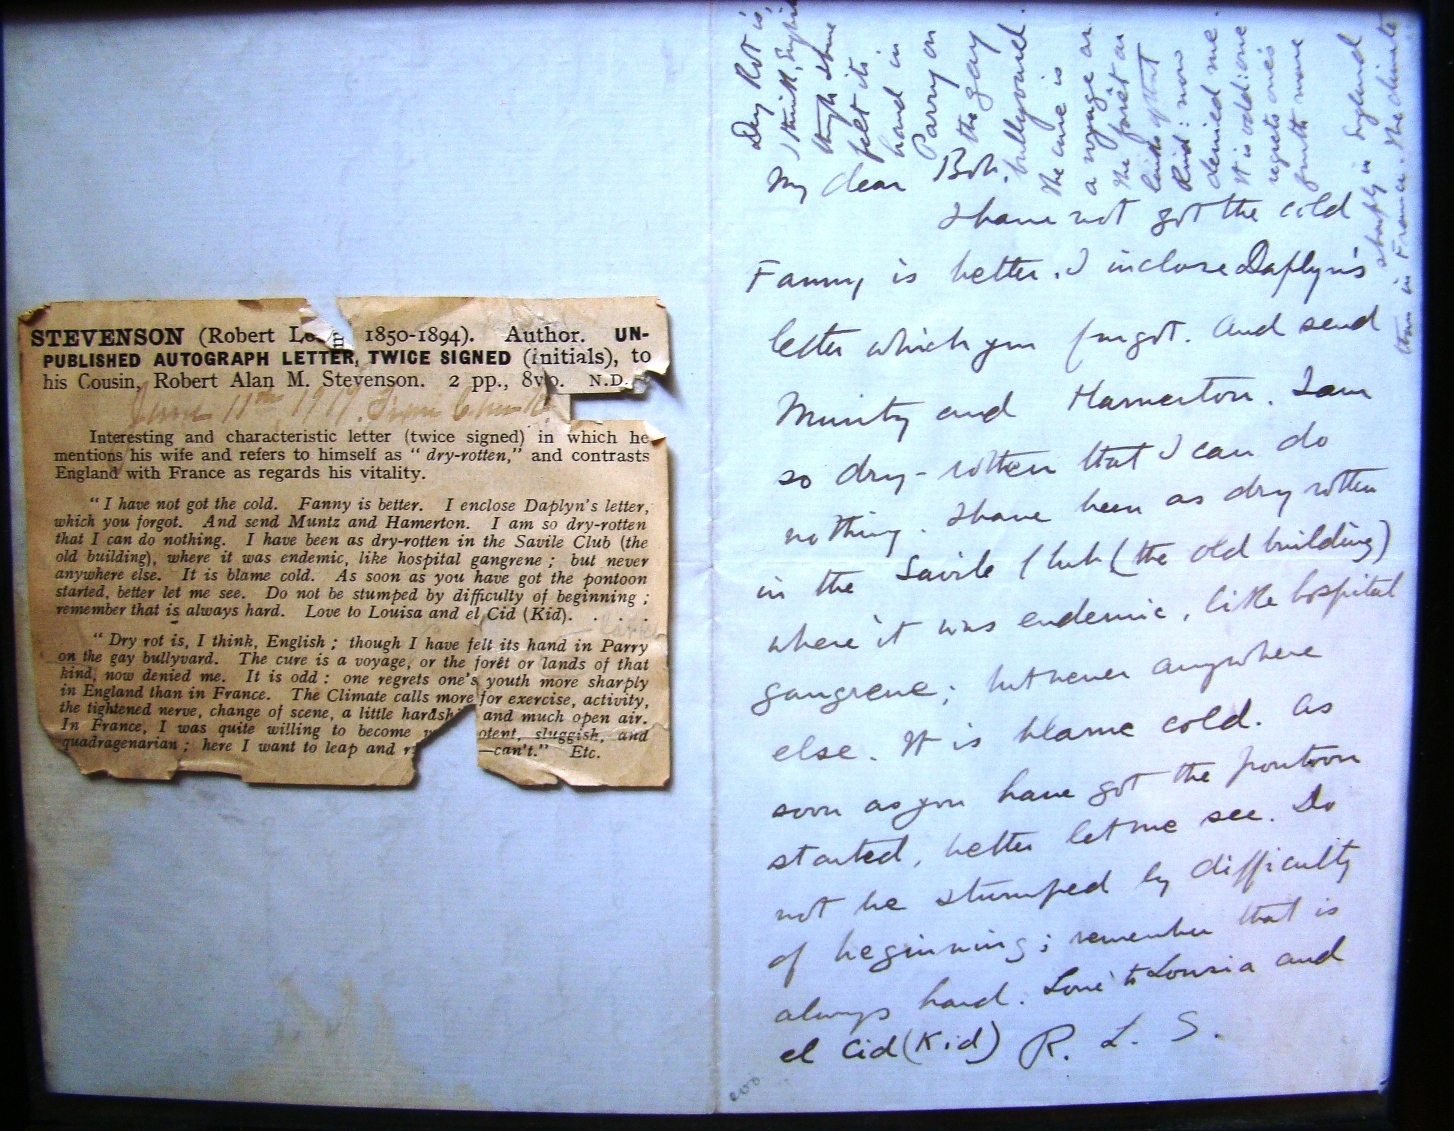 STEVENSON (Robert Lo 1850-1894). Author. UN-
PUBLISHED AUTOGRAPH LETTER, TWICE SIGNED (initials), to
his Cousin, Robert Alan M. Stevenson. 2 pp., 8vo. N.D.
June 11th, 1919. From
Interesting and characteristic letter (twice signed) in which he
mentions his wife and refers to himself as " dry-rotten," and contrasts
England with France as regards his vitality.
" I have not got the cold. Fanny is better. I enclose Daplyn's letter,
which you forgot. And send Muntz and Hamerton. I am so dry-rotten
that I can do nothing. I have been as dry-rotten in the Savile Club (the
old building), where it was endemic, like hospital gangrene ; but never
anywhere else. It is blame cold. As soon as you have got the pontoon
started, better let me see. Do not be stumped by difficulty of beginning ;
remember that is always hard. Love to Louisa and el Cid (Kid). . . .
" Dry rot is, I think, English ; though I have felt its hand in Parry
on the gay bullyvard. The cure is a voyage, or the forêt or lands of that
kind, now denied me. It is odd : one regrets one's youth more sharply
in England than in France. The Climate calls more for exercise, activity,
the tightened nerve, change of scene, a little hardshi and much open air.
In France, I was quite willing to become otent, sluggish, and
quadragenarian ; here I want to leap and r —can't." Etc.
My dear Bob,
I have not got the cold
Fanny is better. I inclose Daplyn's
letter which you forgot. And send
Muntz and Hamerton. I am
so dry-rotten that I can do
nothing. I have been as dry rotten
in the Savile Club (the old building)
where it was endemic, like hospital
gangrene; but never anywhere
else. It is blame cold. As
soon as you have got the pontoon
started, better let me see. Do
not be stumped by difficulty
of beginning; remember that is
always hard. Love to Louisa and
el Cid (Kid) R. L. S.
Dry Rot is,
I think, English
though I have
felt its
hand in
Parry on
the gay
bullyvard.
The cure is
a voyage or
the forêt or
lands of that
kind: now
denied me.
It is odd: one
regrets one's
youth more
sharply in England
than in France. The climate